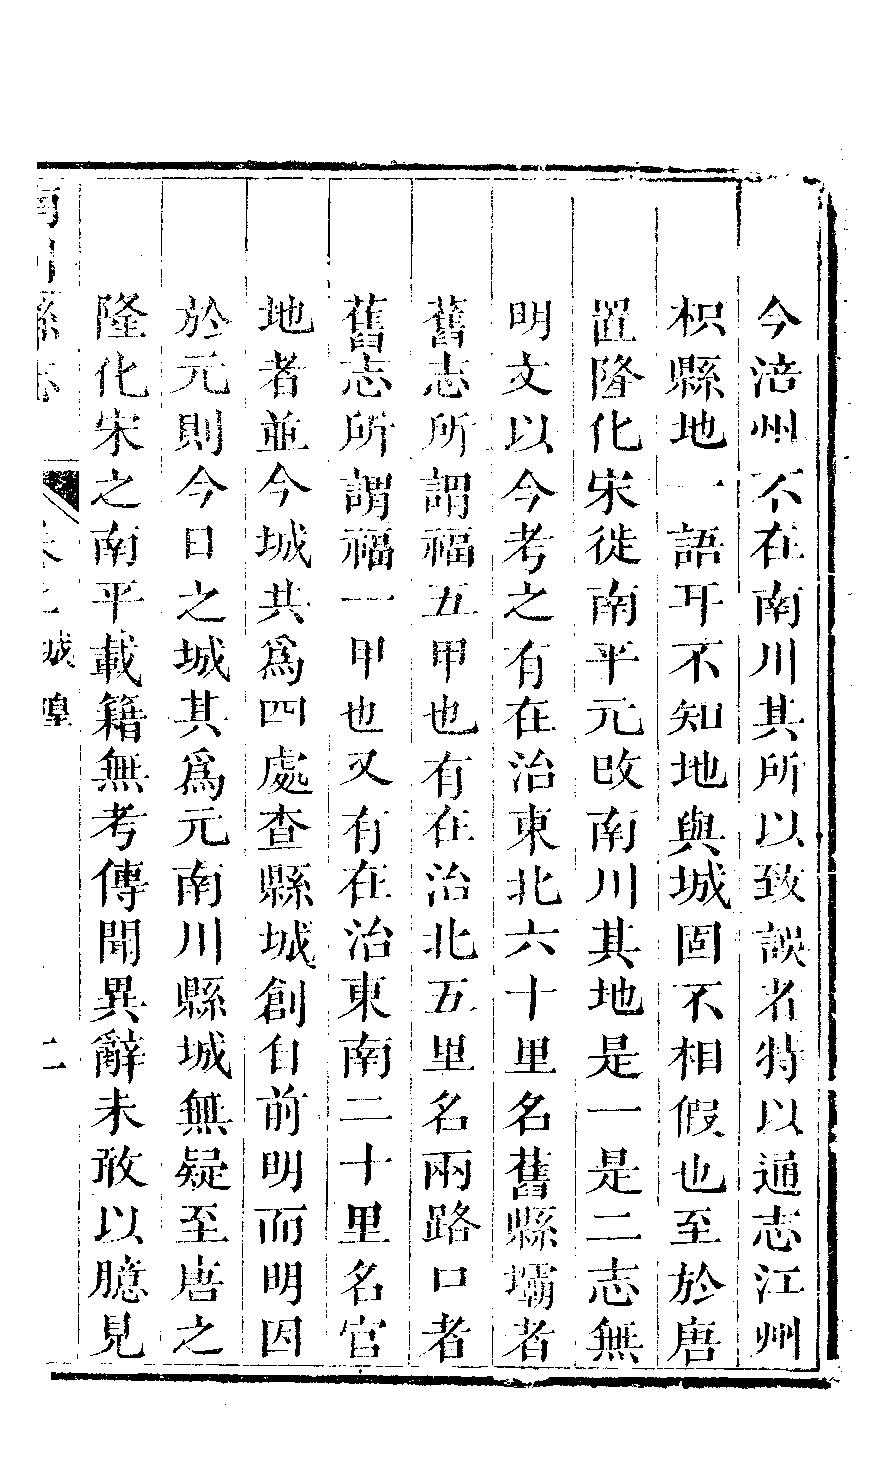 今涪州不在南川其所以致誤者特以通志江州
枳縣地一語耳不知地與城固不相假也至於唐
置隆化宋徙南平元改南川其地是一是二志無
明文以今考之有在治東北六十里名舊縣壩者
舊志所謂福五甲也有在治北五里名兩路口者
舊志所謂福一甲也又有在治東南二十里名官
地者並今城共為四處查縣城創自前明而明因
於元則今日之城其為元南川縣城無疑至唐之
隆化宋之南平載籍無考傳聞異辭未敢以臆見
南川縣志 卷之 城隍 二